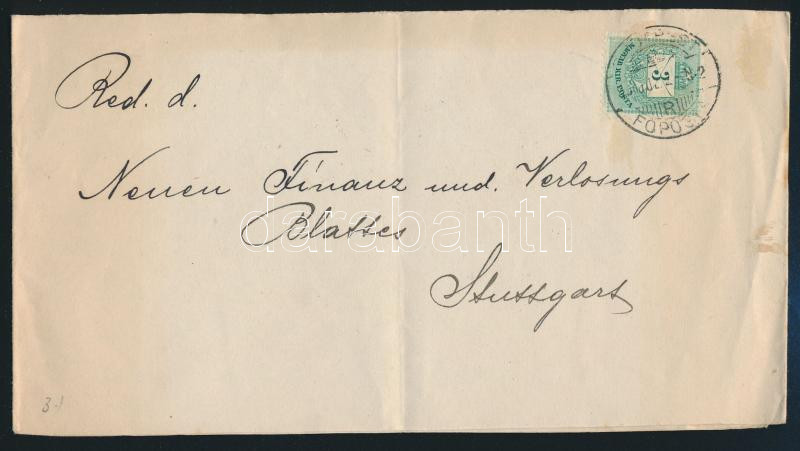 Red. d.
Neuen Finanz und. Verlosungs
Blattes
Stuttgart
3
FŐPOS
darabanth